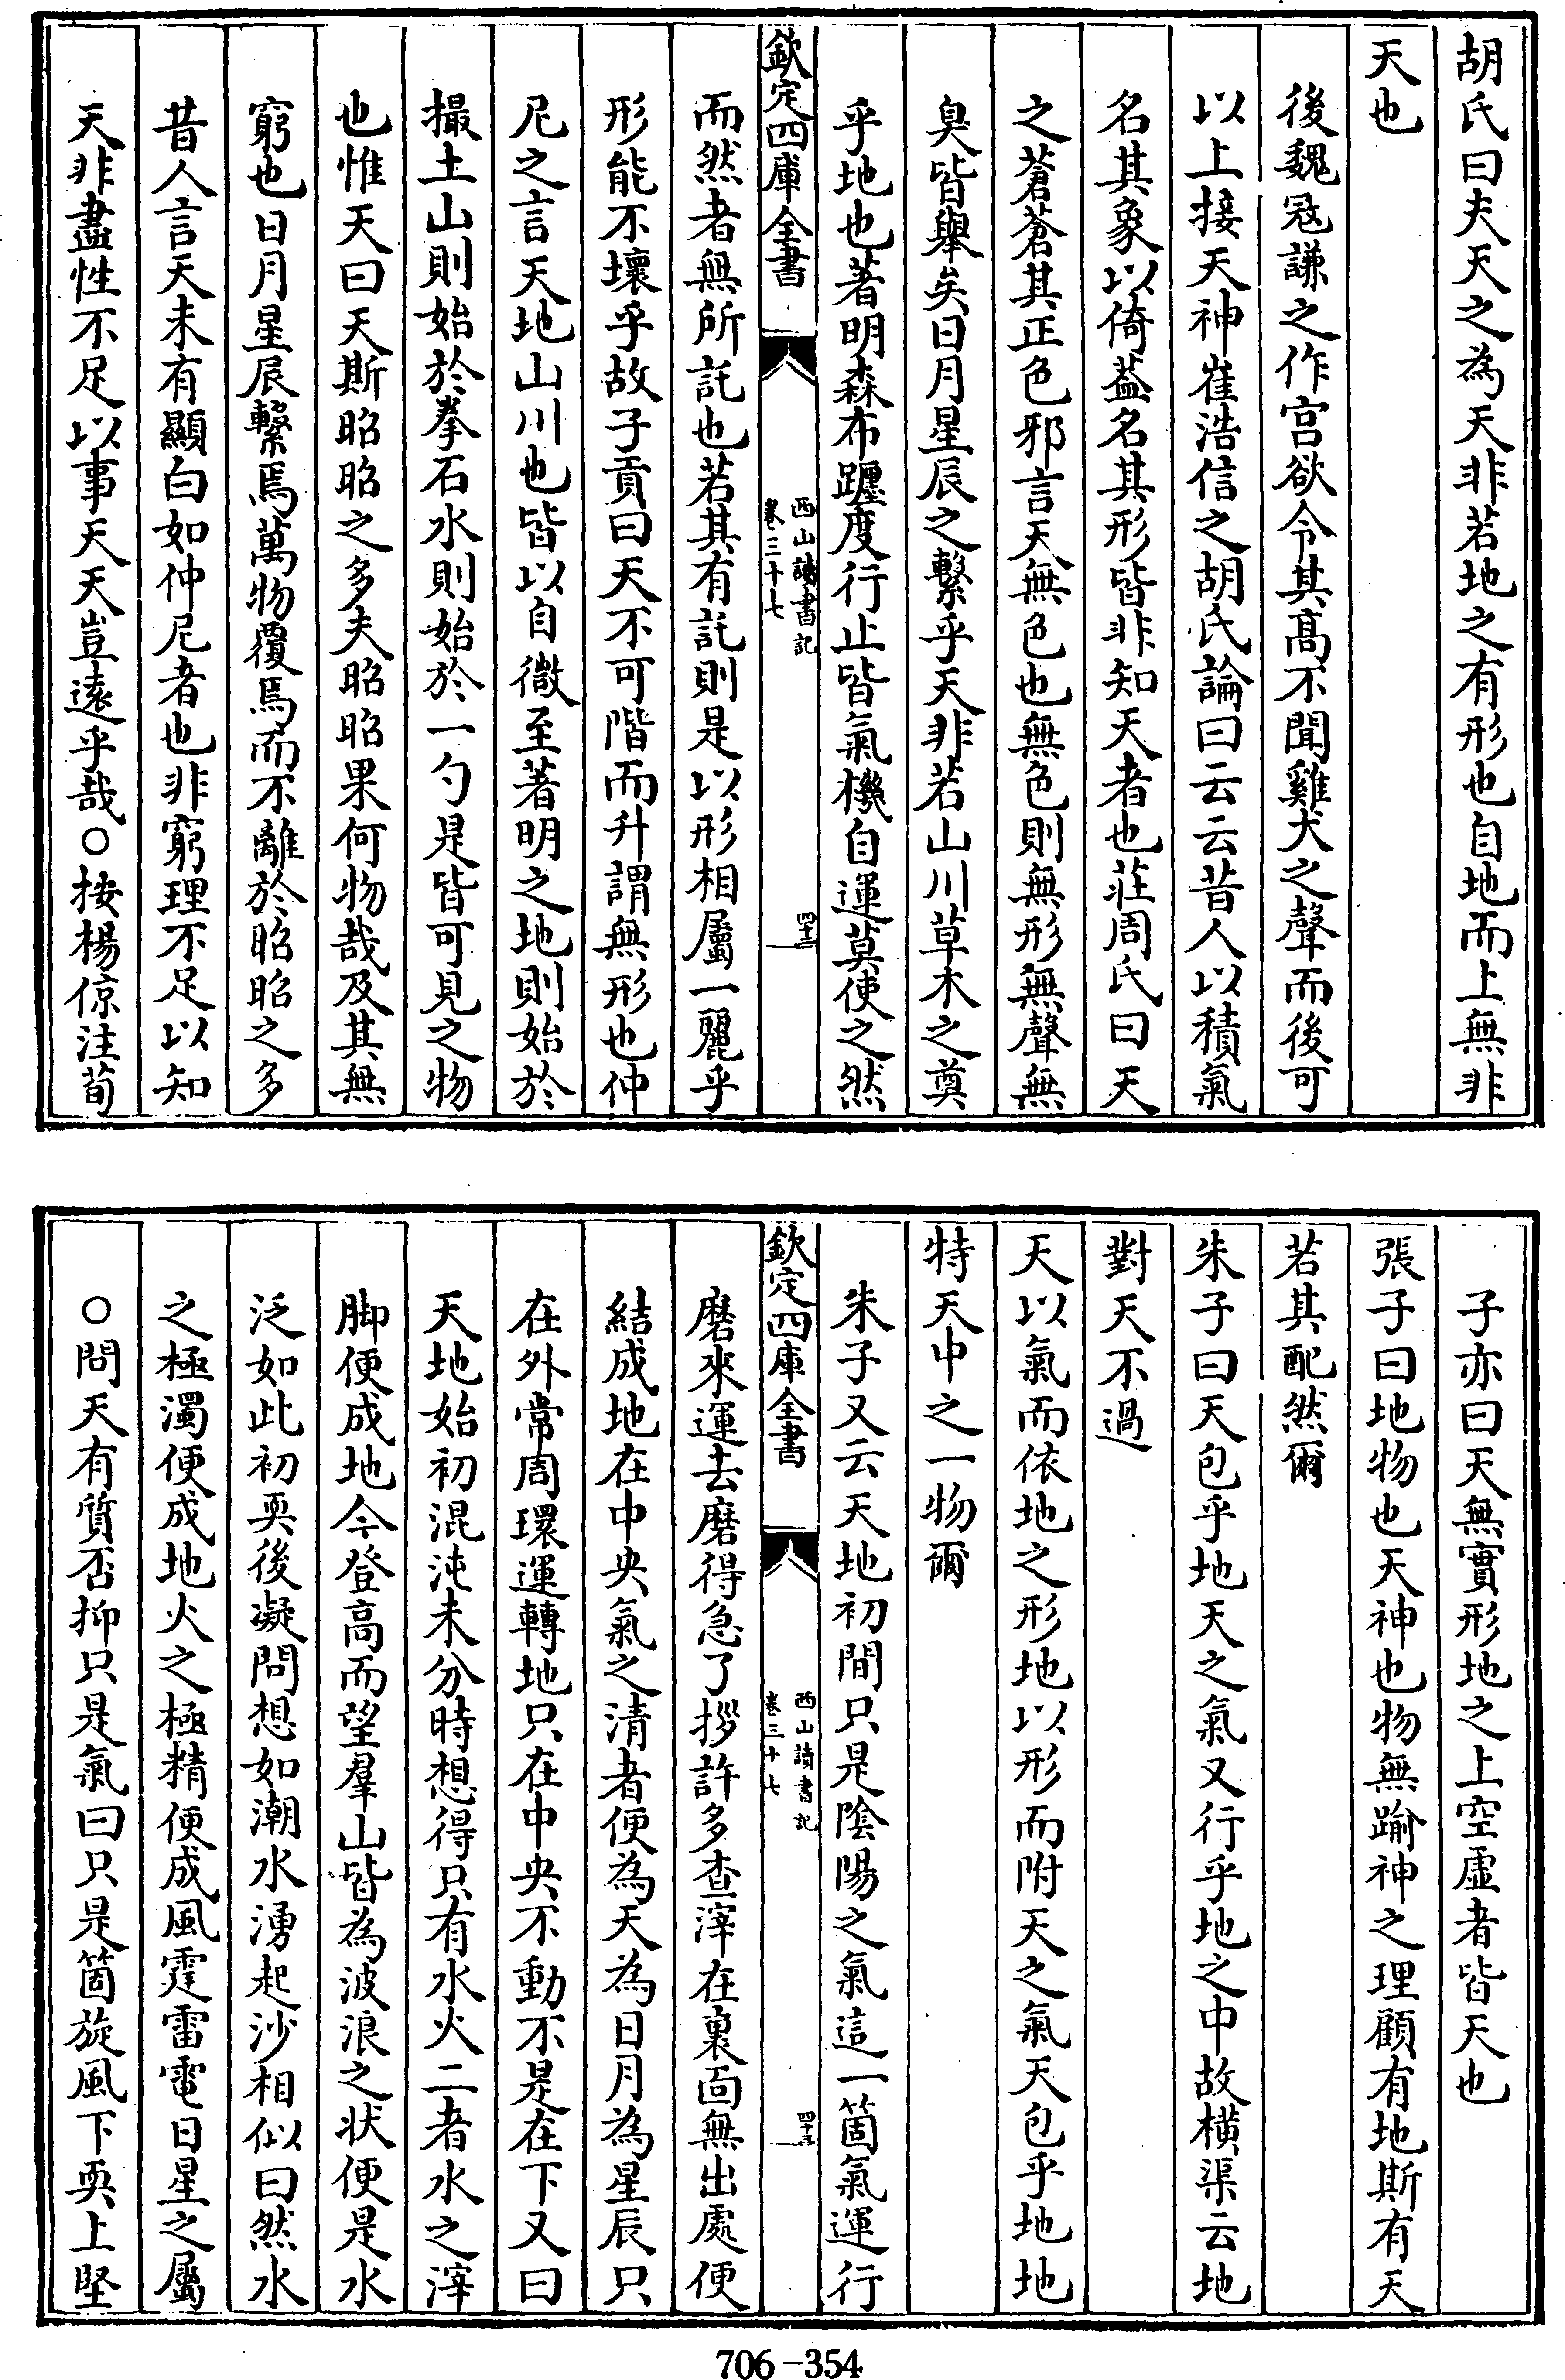 胡氏曰夫天之為天非若地之有形也自地而上無非
天也
後魏冦謙之作宫欲令其髙不聞雞犬之聲而後可
以上接天神崔浩信之胡氏論曰云云昔人以積氣
名其象以倚葢名其形皆非知天者也莊周氏曰天
之蒼蒼其正色邪言天無色也無色則無形無聲無
臭皆舉矣日月星辰之繫乎天非若山川草木之奠
乎地也著明森布躔度行止皆氣機自運莫使之然
欽定四庫全書
西山讀書記
卷三十七
四十二
而然者無所託也若其有託則是以形相屬一麗乎
形能不壞乎故子貢曰天不可階而升謂無形也仲
尼之言天地山川也皆以自微至著明之地則始於
撮土山則始於拳石水則始於一勺是皆可見之物
也惟天曰天斯昭昭之多夫昭昭果何物哉及其無
窮也日月星辰繫焉萬物覆焉而不離於昭昭之多
昔人言天未有顯白如仲尼者也非窮理不足以知
天非盡性不足以事天天豈遠乎哉○按楊倞注荀
子亦曰天無實形地之上空虛者皆天也
張子曰地物也天神也物無踰神之理顧有地斯有天
若其配然爾
朱子曰天包乎地天之氣又行乎地之中故橫渠云地
對天不過
天以氣而依地之形地以形而附天之氣天包乎地地
特天中之一物爾
朱子又云天地初間只是陰陽之氣這一箇氣運行
欽定四庫全書
西山讀書記
卷三十七
四十三
磨來運去磨得急了拶許多查滓在裏面無出處便
結成地在中央氣之清者便為天為日月為星辰只
在外常周環運轉地只在中央不動不是在下又曰
天地始初混沌未分時想得只有水火二者水之滓
脚便成地今登高而望羣山皆為波浪之狀便是水
泛如此初耎後凝問想如潮水湧起沙相似曰然水
之極濁便成地火之極精便成風霆雷電日星之屬
○問天有質否抑只是氣曰只是箇旋風下耎上堅
706-354